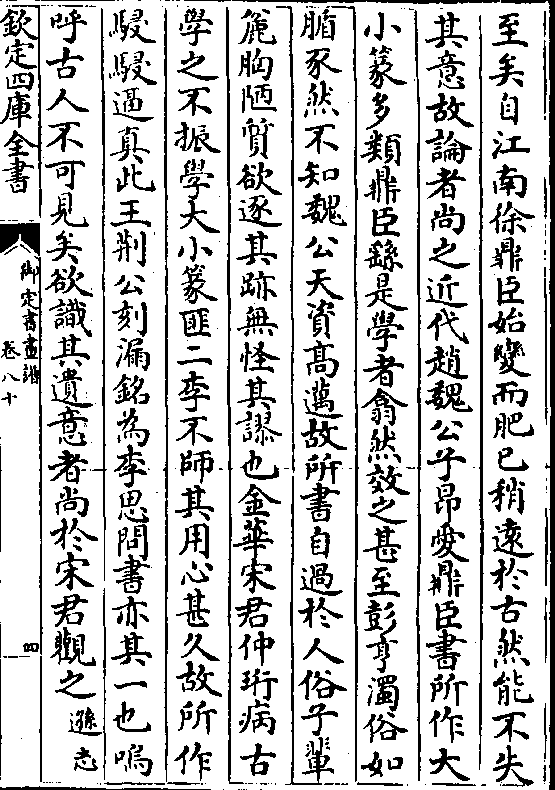 至矣自江南徐鼎臣始變而肥已稍遠於古然能不失
其意故論者尚之近代趙魏公子昂愛鼎臣書所作大
小篆多類鼎臣繇是學者翕然效之甚至彭亨濁俗如
腯豕然不知魏公天資高邁故所書自過於人俗子輩
麄胸陋質欲逐其跡無怪其謬也金華宋君仲珩病古
學之不振學大小篆匪二李不師其用心甚久故所作
駸駸逼真此王荆公刻漏銘為李思問書亦其一也嗚
呼古人不可見矣欲識其遺意者尚於宋君觀之遜志
欽定四庫全書
御定書畫譜
卷八十
四